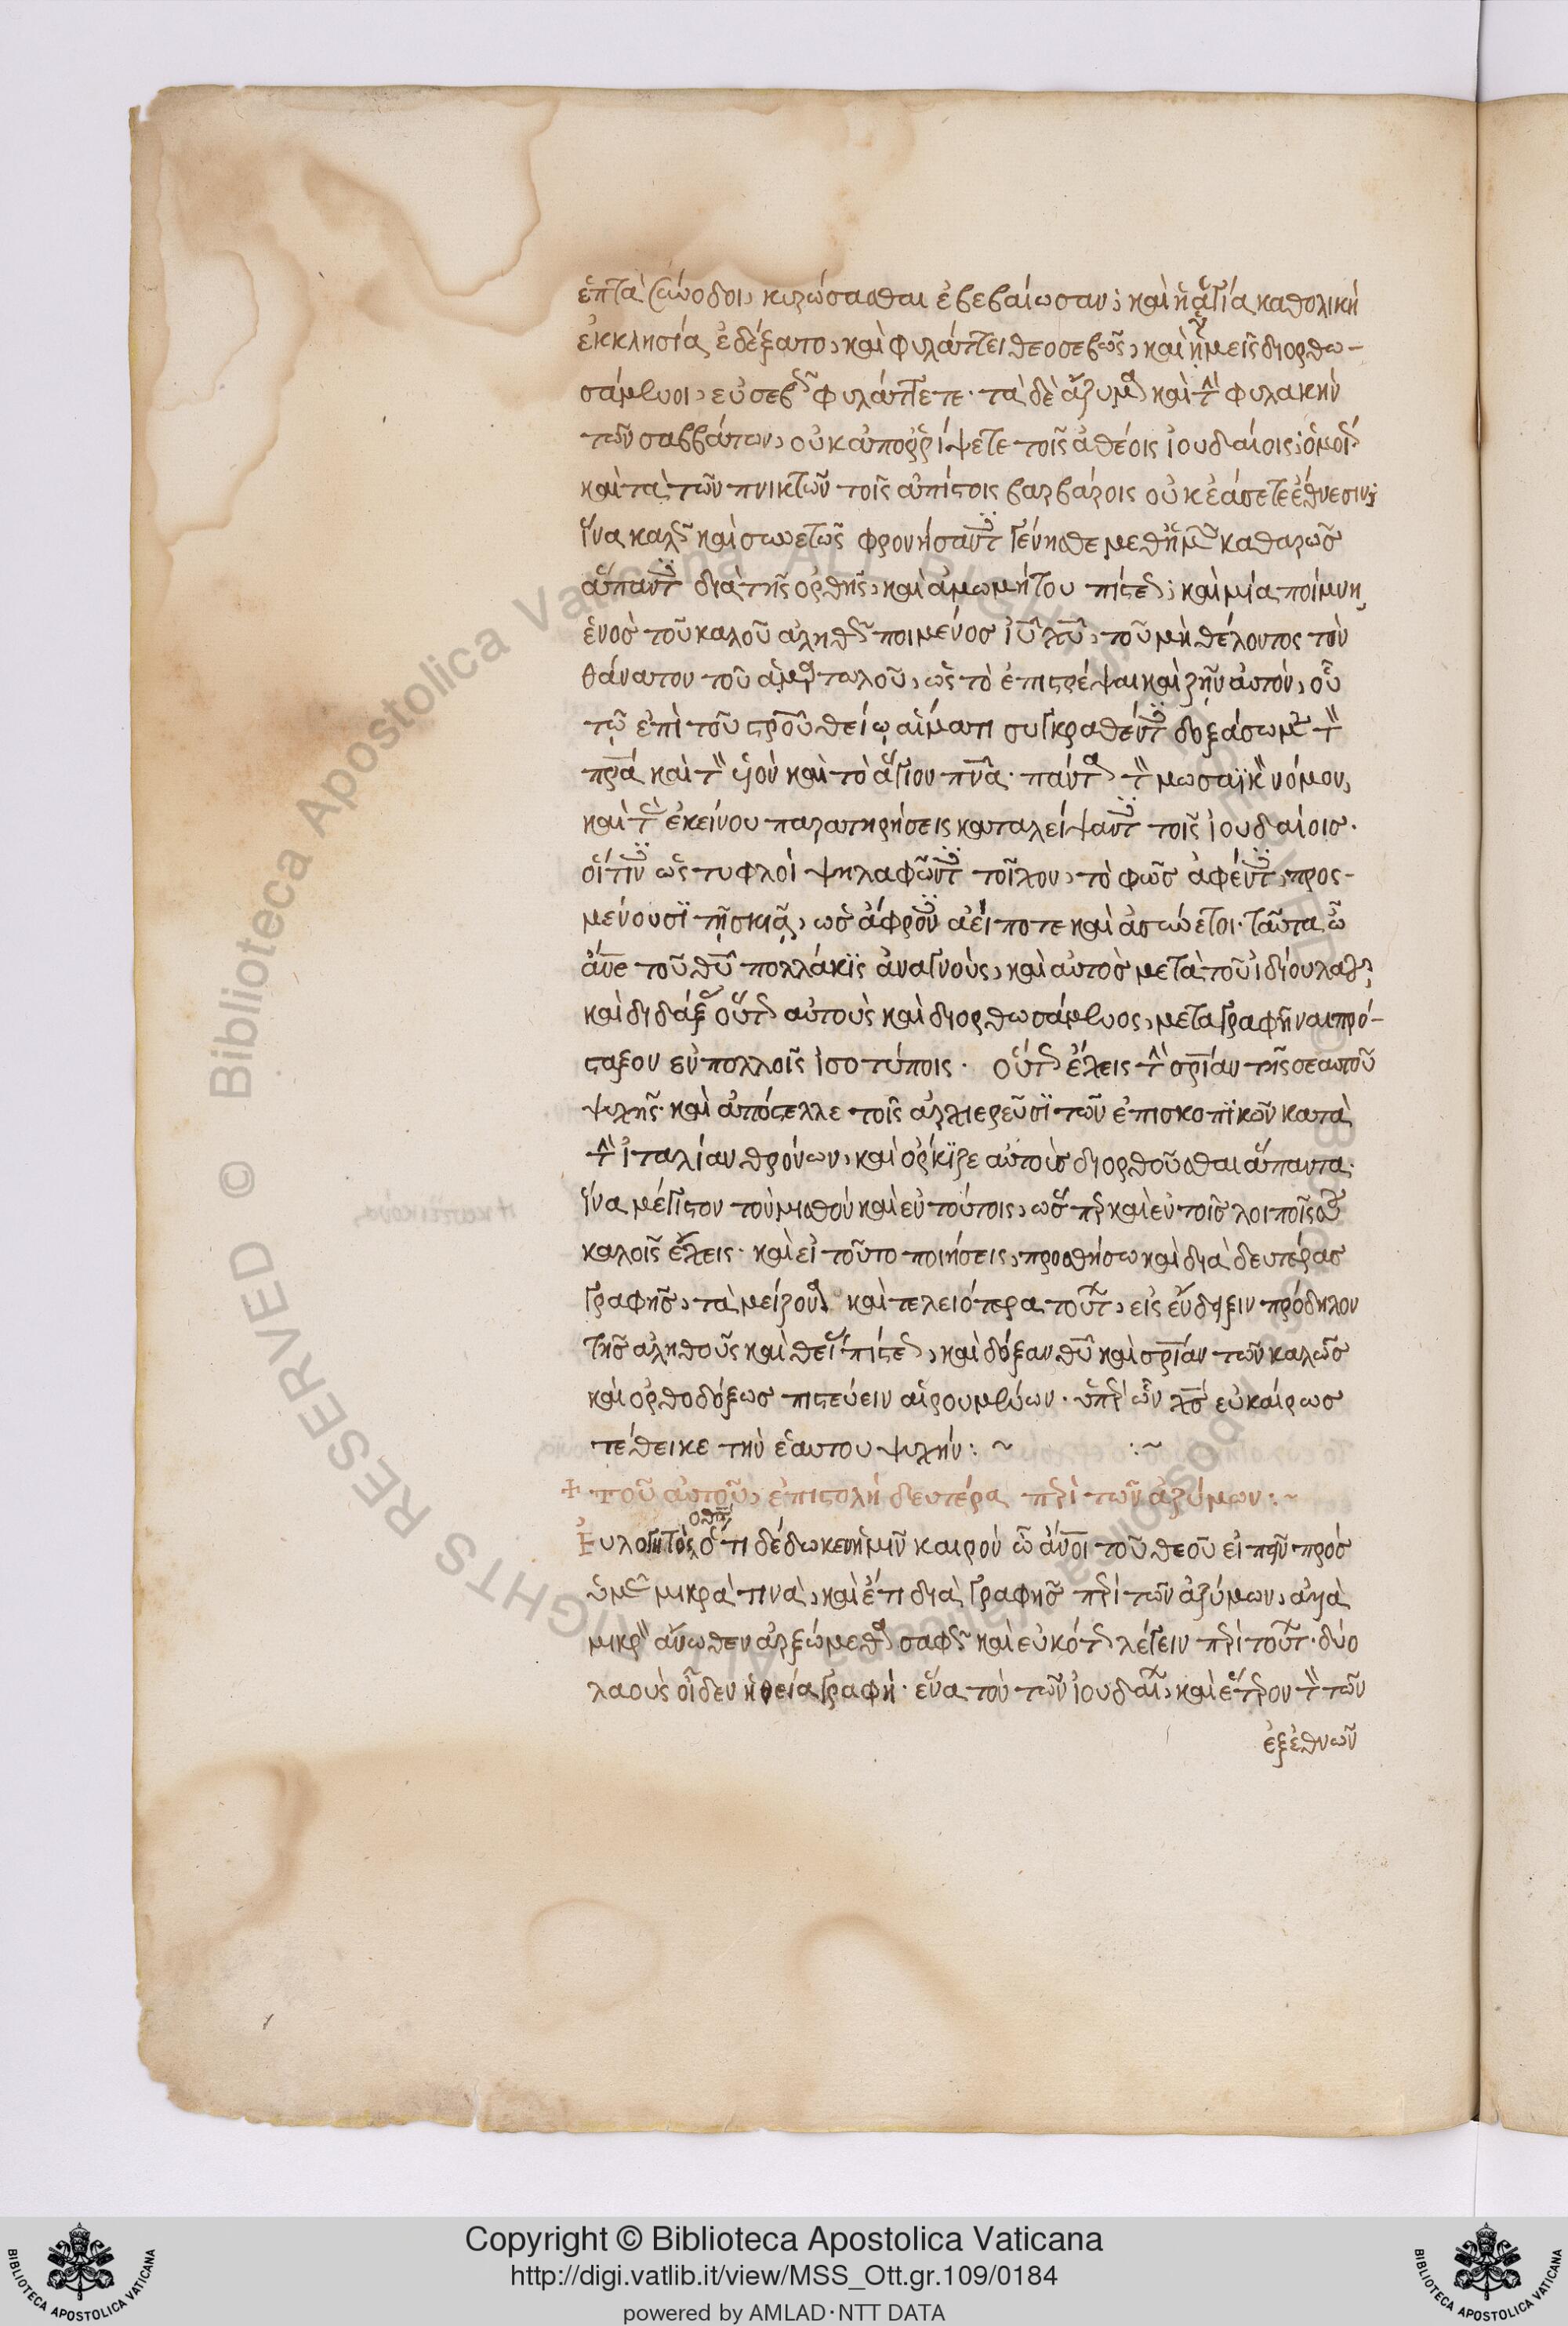 ἑπτὰ σύνοδοι, κυρώσασθαι ἐβεβαίωσαν; καὶ ἡ ἁγία καθολικὴ
ἐκκλησία ἐδέξατο, καὶ φυλάττει θεοσεβῶς, καὶ ἡμεῖς διορθω-
σάμενοι, εὐσεβῶς φυλάττετε. τὰ δὲ ἄζυμα, καὶ τὴν φυλακὴν
τῶν σαββάτων, οὐκ ἀπορρίψετε τοῖς ἀθέοις ἰουδαίοις; ὁμοί
καὶ τὰ τῶν πνικτῶν τοῖς ἀπίστοις βαρβάροις οὐκ ἐάσετε ἔθνεσιν;
ἵνα καλῶς καὶ συνετῶς φρονήσαντες γένησθε μεθ' ἡμῶν καθαρῶς
ἅπαντες διὰ τῆς ὀρθῆς, καὶ ἀμωμήτου πίστεως; καὶ μία ποίμνη,
ἑνὸς τοῦ καλοῦ ἀληθῶς ποιμένος ἰῦ χῦ, τοῦ μὴ θέλοντος τὸν
θάνατον τοῦ ἁμαρτωλοῦ, ὡς τὸ ἐπιστρέψαι καὶ ζῆν αὐτόν, οὗ
τῷ ἐπὶ τοῦ στροῦ θείῳ αἵματι συγκραθέντες δοξάσωμεν τὸν
πρα καὶ τὸν υἱὸν καὶ τὸ ἅγιον πνα. πάντα τὸν μωσαϊκὸν νόμον,
καὶ τὰς ἐκείνου παρατηρήσεις καταλείψαντες τοῖς ἰουδαίοις.
οἵτινες ὡς τυφλοὶ ψηλαφῶντες τοῖχον, τὸ φῶς ἀφέντες, προς-
μένουσϊ τῇ σκιᾷ, ὡς ἄφρονες ἀεί ποτε καὶ ἀσύνετοι. ταῦτα ὦ
ἄνε τοῦ θῦ πολλάκϊς ἀναγνούς, καὶ αὐτὸς μετὰ τοῦ ἰδίου λαοῦ,
καὶ διδάξας οὕτως αὐτοὺς καὶ διορθωσάμενος, μεταγραφῆναι πρό-
σταξον ἐν πολλοῖς ἰσοτύποις. οὕτως ἔχεις τὴν σριαν τῆς σεαυτοῦ
ψυχῆς. καὶ ἀπόστελλε τοῖς ἀρχιερεῦσϊ τῶν ἐπισκοπϊκῶν κατὰ
τὴν ἰταλίαν θρόνων, καὶ ὅρκϊζε αὐτοὺς διορθοῦσθαι ἅπαντα.
ἵνα μέγιστον τὸν μισθὸν καὶ ἐν τούτοις, ὥσπερ καὶ ἐν τοῖς λοιποῖς σου
καλοῖς ἔχεις. καὶ εἰ τοῦτο ποιήσεις, προσθήσω καὶ διὰ δευτέρας
γραφῆς, τὰ μείζονα καὶ τελειότερα τούτων, εἰς ἔνδειξιν πρόδηλον
τῆς ἀληθοῦς καὶ θείας πίστεως, καὶ δόξαν θῦ καὶ σριαν τῶν καλῶς
καὶ ὀρθοδόξως πιστεύειν αἱρουμένων. ὑπὲρ ὧν χς εὐκαίρως
τέθεικε τὴν ἑαυτου ψυχήν: ~ :~
+ τοῦ αὐτοῦ, ἐπιστολὴ δευτέρα περὶ τῶν ἀζύμων: ~
Εὐλογητὸς ὅτι δέδωκεν ἡμῖν καιρὸν ὦ ἄνοι τοῦ θεοῦ εἰπεῖν πρὸς
ὑμᾶς μικρά τινα, καὶ ἔτι διὰ γραφῆς περὶ τῶν ἀζύμων, ἀλλὰ
μικρὸν ἄνωθεν ἀρξώμεθα σαφῶς καὶ εἰκότως λέγειν περὶ τούτων. δύο
λαοὺς οἶδεν ἡ θεία γραφή. ἕνα τὸν τῶν ἰουδαίων, καὶ ἕτερον τὸν τῶν
ἐξ ἐθνῶν
Copyright © Biblioteca Apostolica Vaticana
http://digi.vatlib.it/view/MSS_Ott.gr.109/0184
powered by AMLAD·NTT DATA